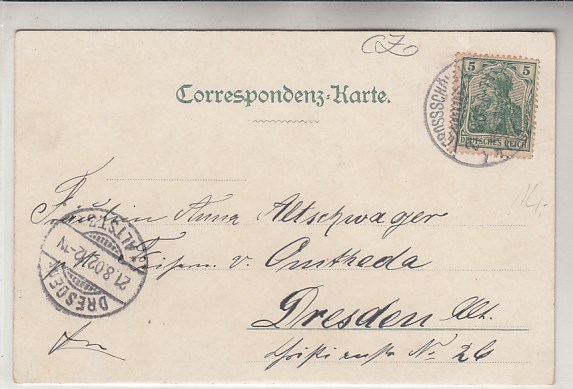 Correspondenz-Karte.
5 5
DEUTSCHES REICH
GROSSSCHÖ
Fräulein Anna Altschwager
v.
Dresden Alt.
No. 26
DRESDEN ALTST.
21.8.02.12-1V
14,-